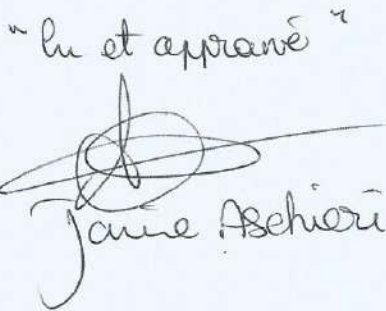 "lu et approuvé"
Jaime Aschieri